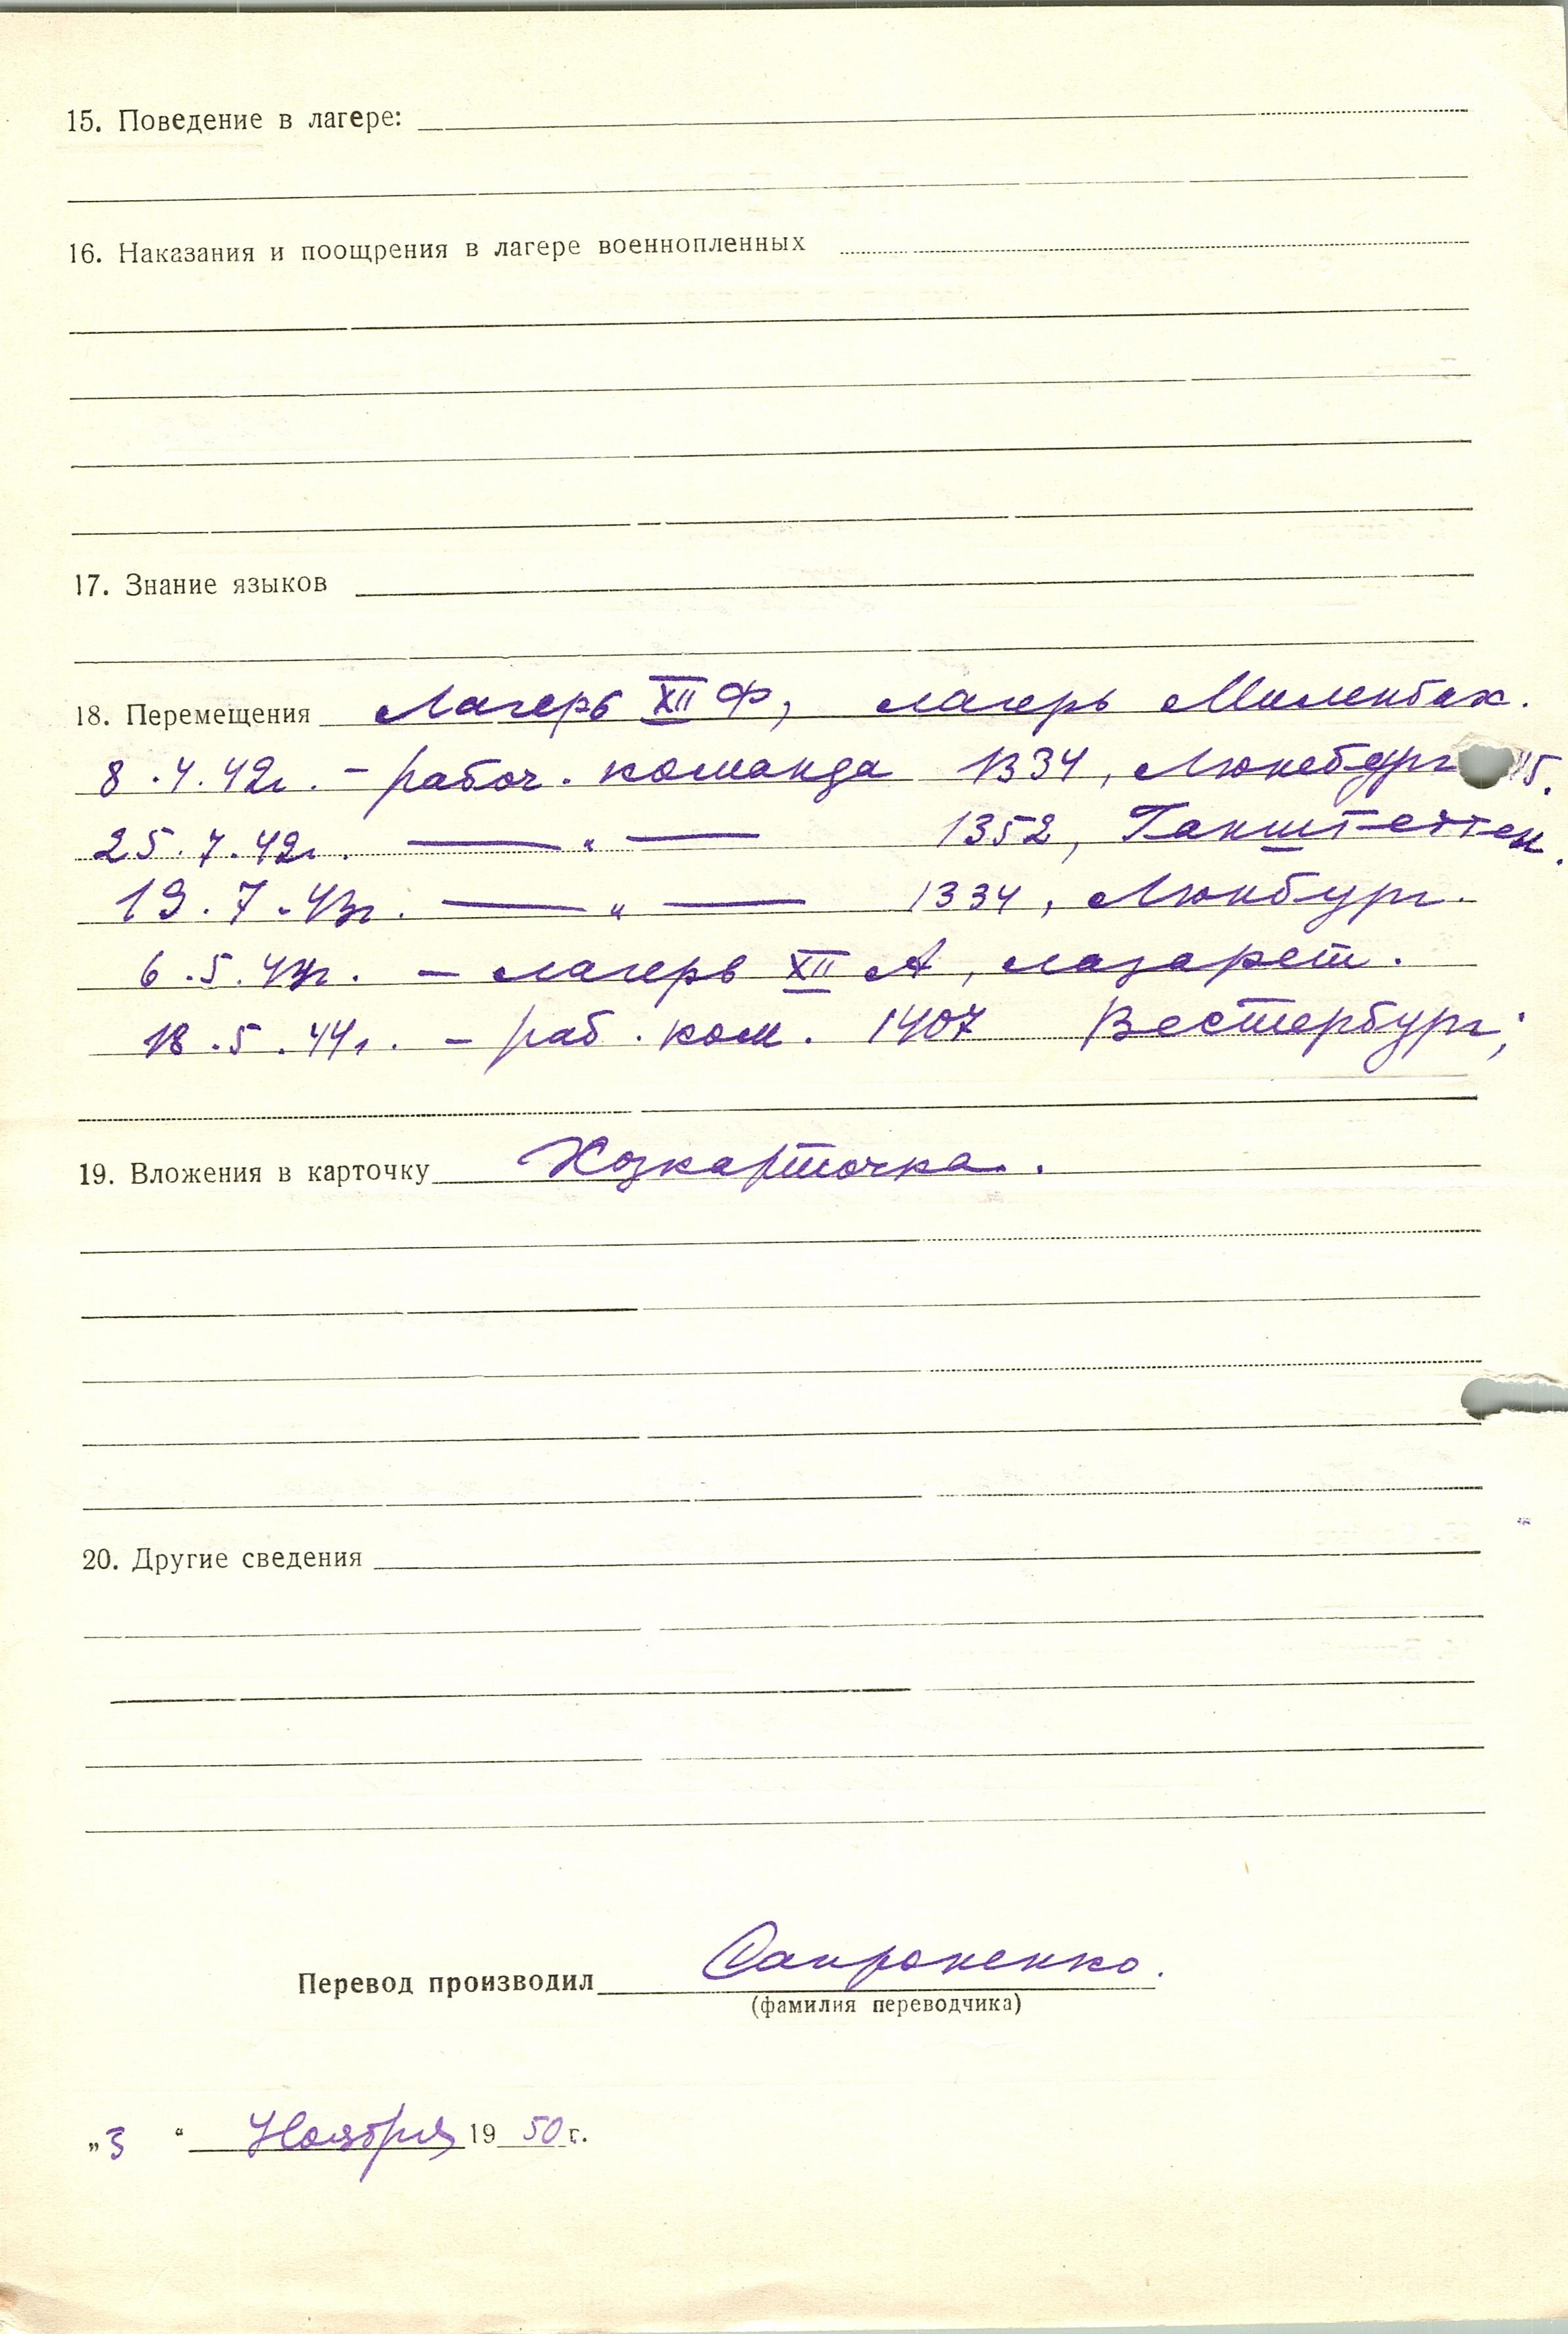 15. Поведение в лагере:
16. Наказания и поощрения в лагере военнопленных
17. Знание языков
18. Перемещения Лагерь XII Ф, лагерь Миленбах.
8.4.42г. – рабоч. команда 1334, Люнебург
25.7.42г. — „ — 1352, Ганштеттен.
19.7.43г. — „ — 1334, Люнбург.
6.5.44г. – лагерь XII А, лазарет.
18.5.44г. – раб. ком. 1407 Вестербург;
19. Вложения в карточку Хозкарточка.
20. Другие сведения
Перевод производил Сапроненко.
(фамилия переводчика)
„3“ Ноября 1950 г.